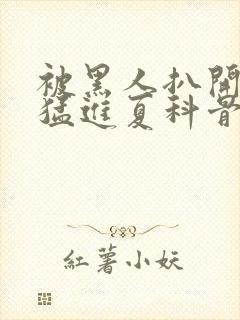 被黑人扒開
猛進夏科昔
紅薯小妖